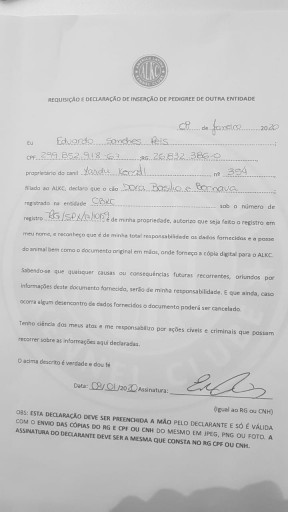 ALKC
REQUISIÇÃO E DECLARAÇÃO DE INSERÇÃO DE PEDIGREE DE OUTRA ENTIDADE
de Janeiro 2020
EU Eduardo Sanches Reis
CPF RG 26.832.386-0
proprietário do canil nº 394
filiado ao ALKC, declaro que o cão Dora Basilio e Bornava
registrado na entidade CBKC sob o número de
registro é de minha propriedade, autorizo que seja feito o registro em
meu nome, e reconheço que é de minha total responsabilidade os dados fornecidos e a posse
do animal bem como o documento original em mãos, onde forneço a cópia digital para o ALKC.
Sabendo-se que quaisquer causas ou consequências futuras recorrentes, oriundos por
informações deste documento fornecido, serão de minha responsabilidade. E que ainda, caso
ocorra algum desencontro de dados fornecidos o documento poderá ser cancelado.
Tenho ciência dos meus atos e me responsabilizo por ações cíveis e criminais que possam
recorrer sobre as informações aqui declaradas.
O acima descrito é verdade e dou fé
Data: 09/01/2020 Assinatura:
(Igual ao RG ou CNH)
OBS: ESTA DECLARAÇÃO DEVE SER PREENCHIDA A MÃO PELO DECLARANTE E SÓ É VÁLIDA
COM O ENVIO DAS CÓPIAS DO RG E CPF OU CNH DO MESMO EM JPEG, PNG OU FOTO. A
ASSINATURA DO DECLARANTE DEVE SER A MESMA QUE CONSTA NO RG CPF OU CNH.